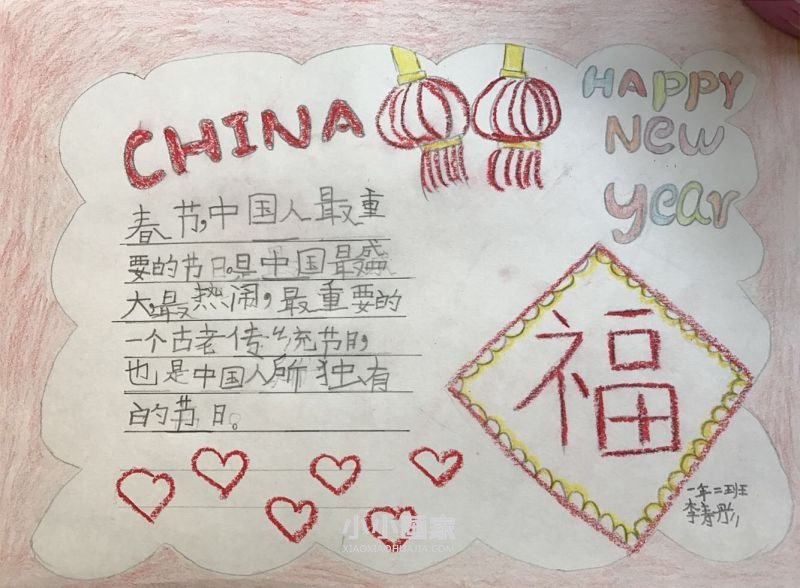 CHINA
HAPPY
New
year
春节,中国人最重
要的节日。是中国最盛
大,最热闹,最重要的
一个古老传统节日,
也是中国人所独有
的节日。
福
一年二班
小小画家
XIAOXIAOHUAJIA.COM